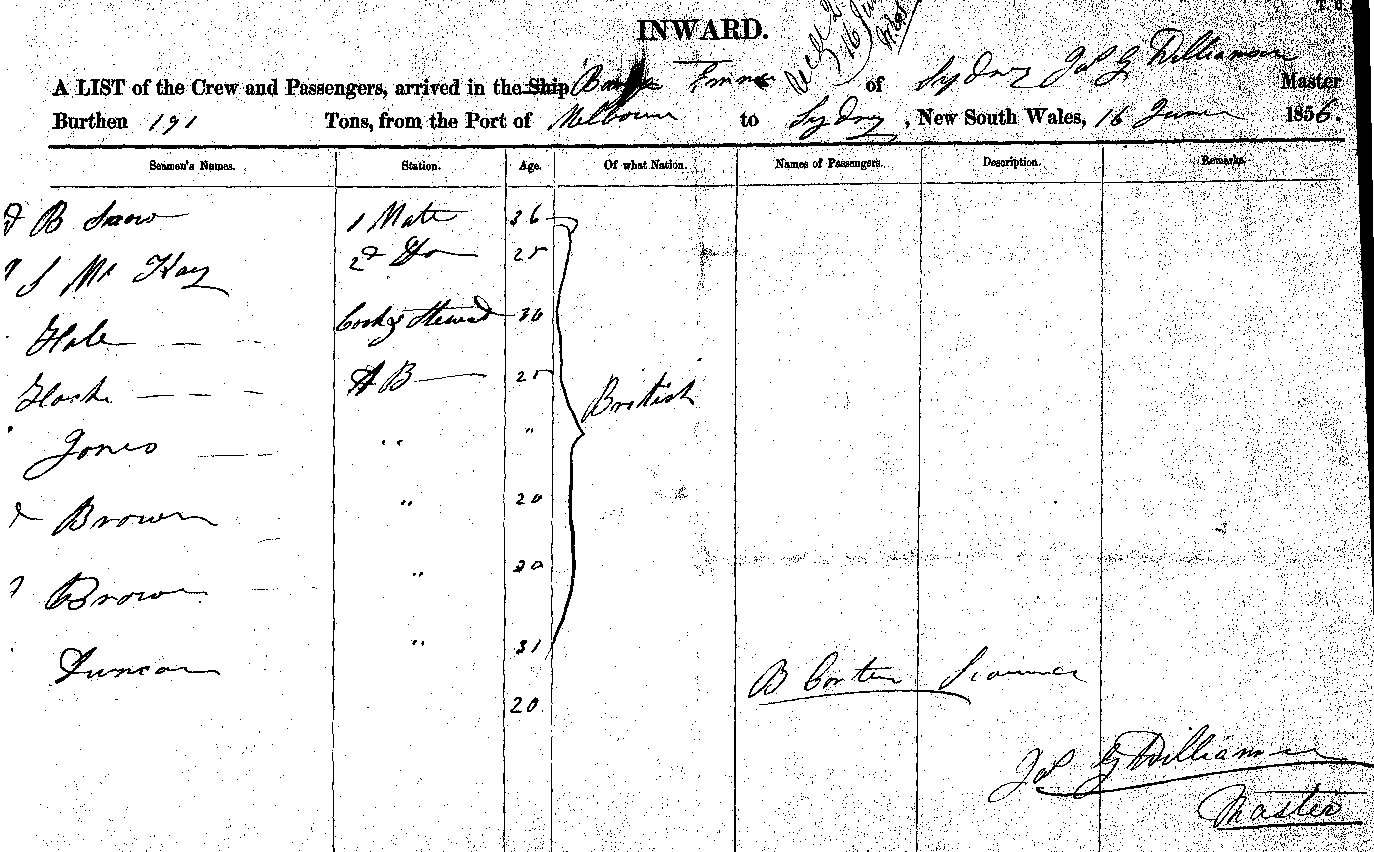 INWARD.
A LIST of the Crew and Passengers, arrived in the Ship Emma of Sydney Jas G Williams Master
Burthen 191 Tons, from the Port of Melbourne to Sydney, New South Wales, 16 June 1856.
Seamen's Names. Station. Age. Of what Nation. Names of Passengers. Description. Remarks.
B 1 Mate 36
S Mc Kay 2d Do 25
Hale Cook & Steward
A B 25 British
Jones " "
Brown " 20
Brown " 20
Duncan " 31
20 B
Jas G Williams
Master